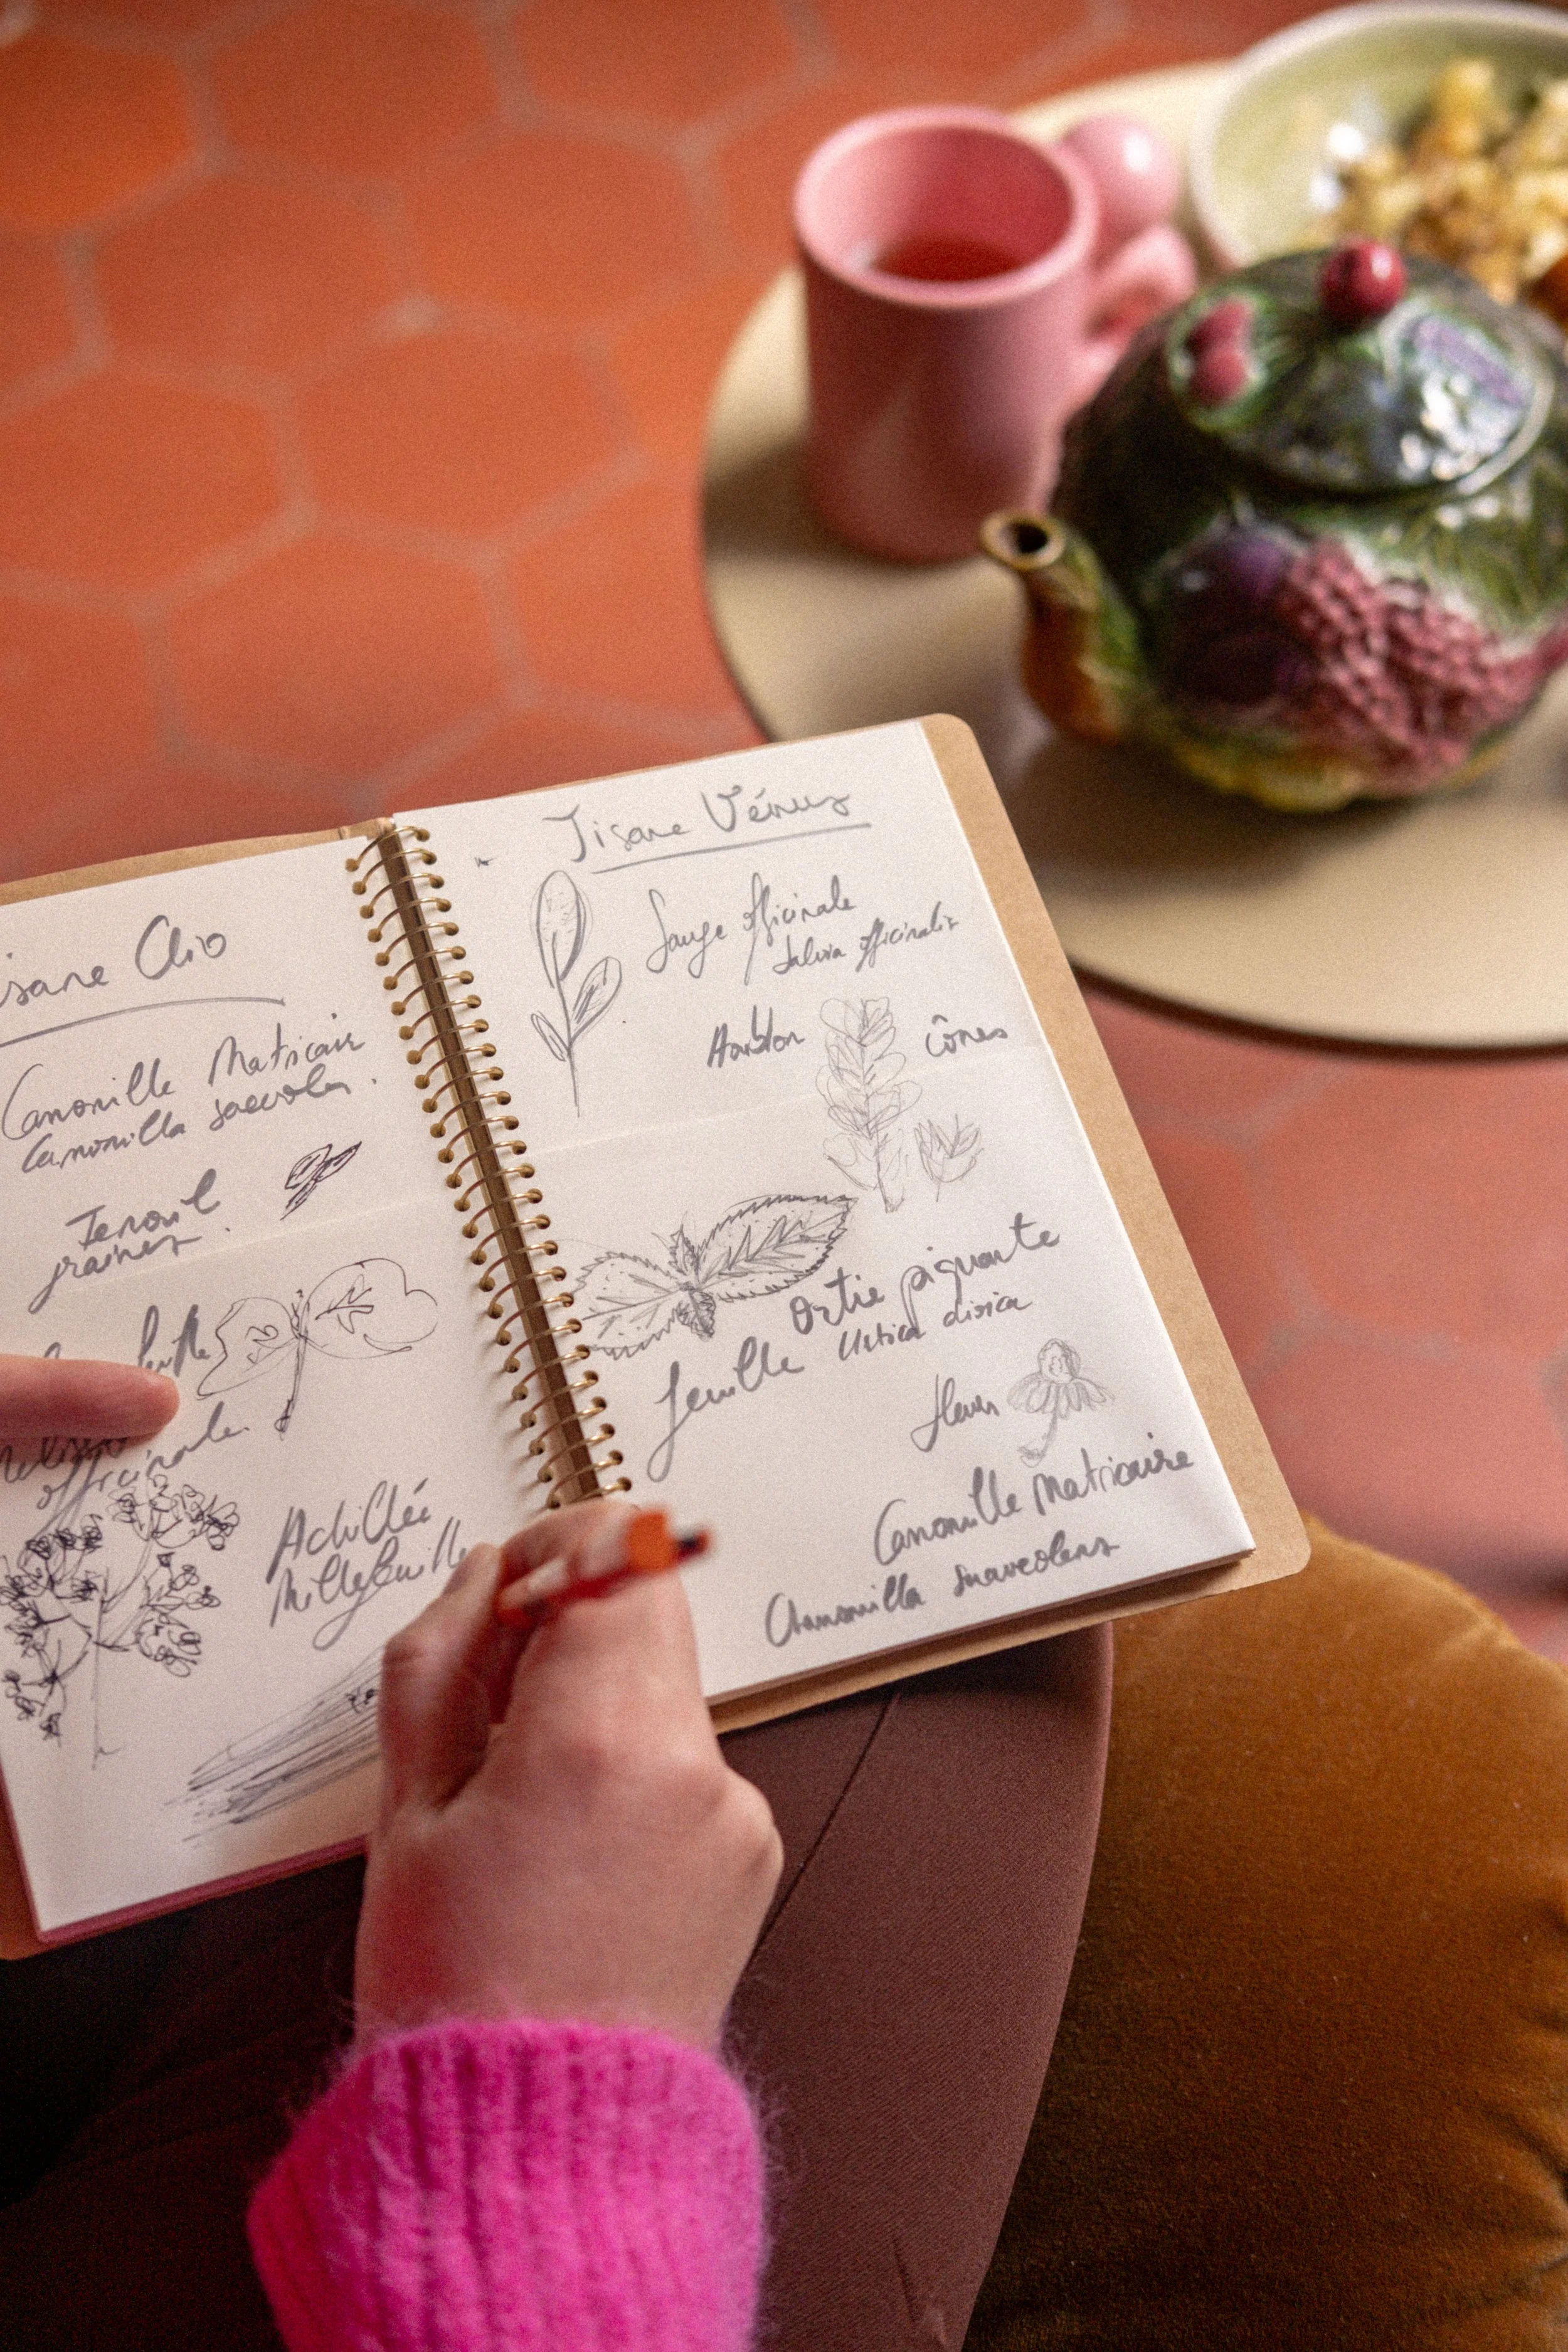 isane Clio
Camomille Matricaire
Camomilla suaveolens.
Fenouil
graines.
officinale.
Achillée
Millefeuille
Tisane Vénus
Sauge officinale
Salvia officinalis
Houblon
cônes
ortie piquante
feuille Urtica dioica
fleurs
Camomille Matricaire
Chamomilla suaveolens